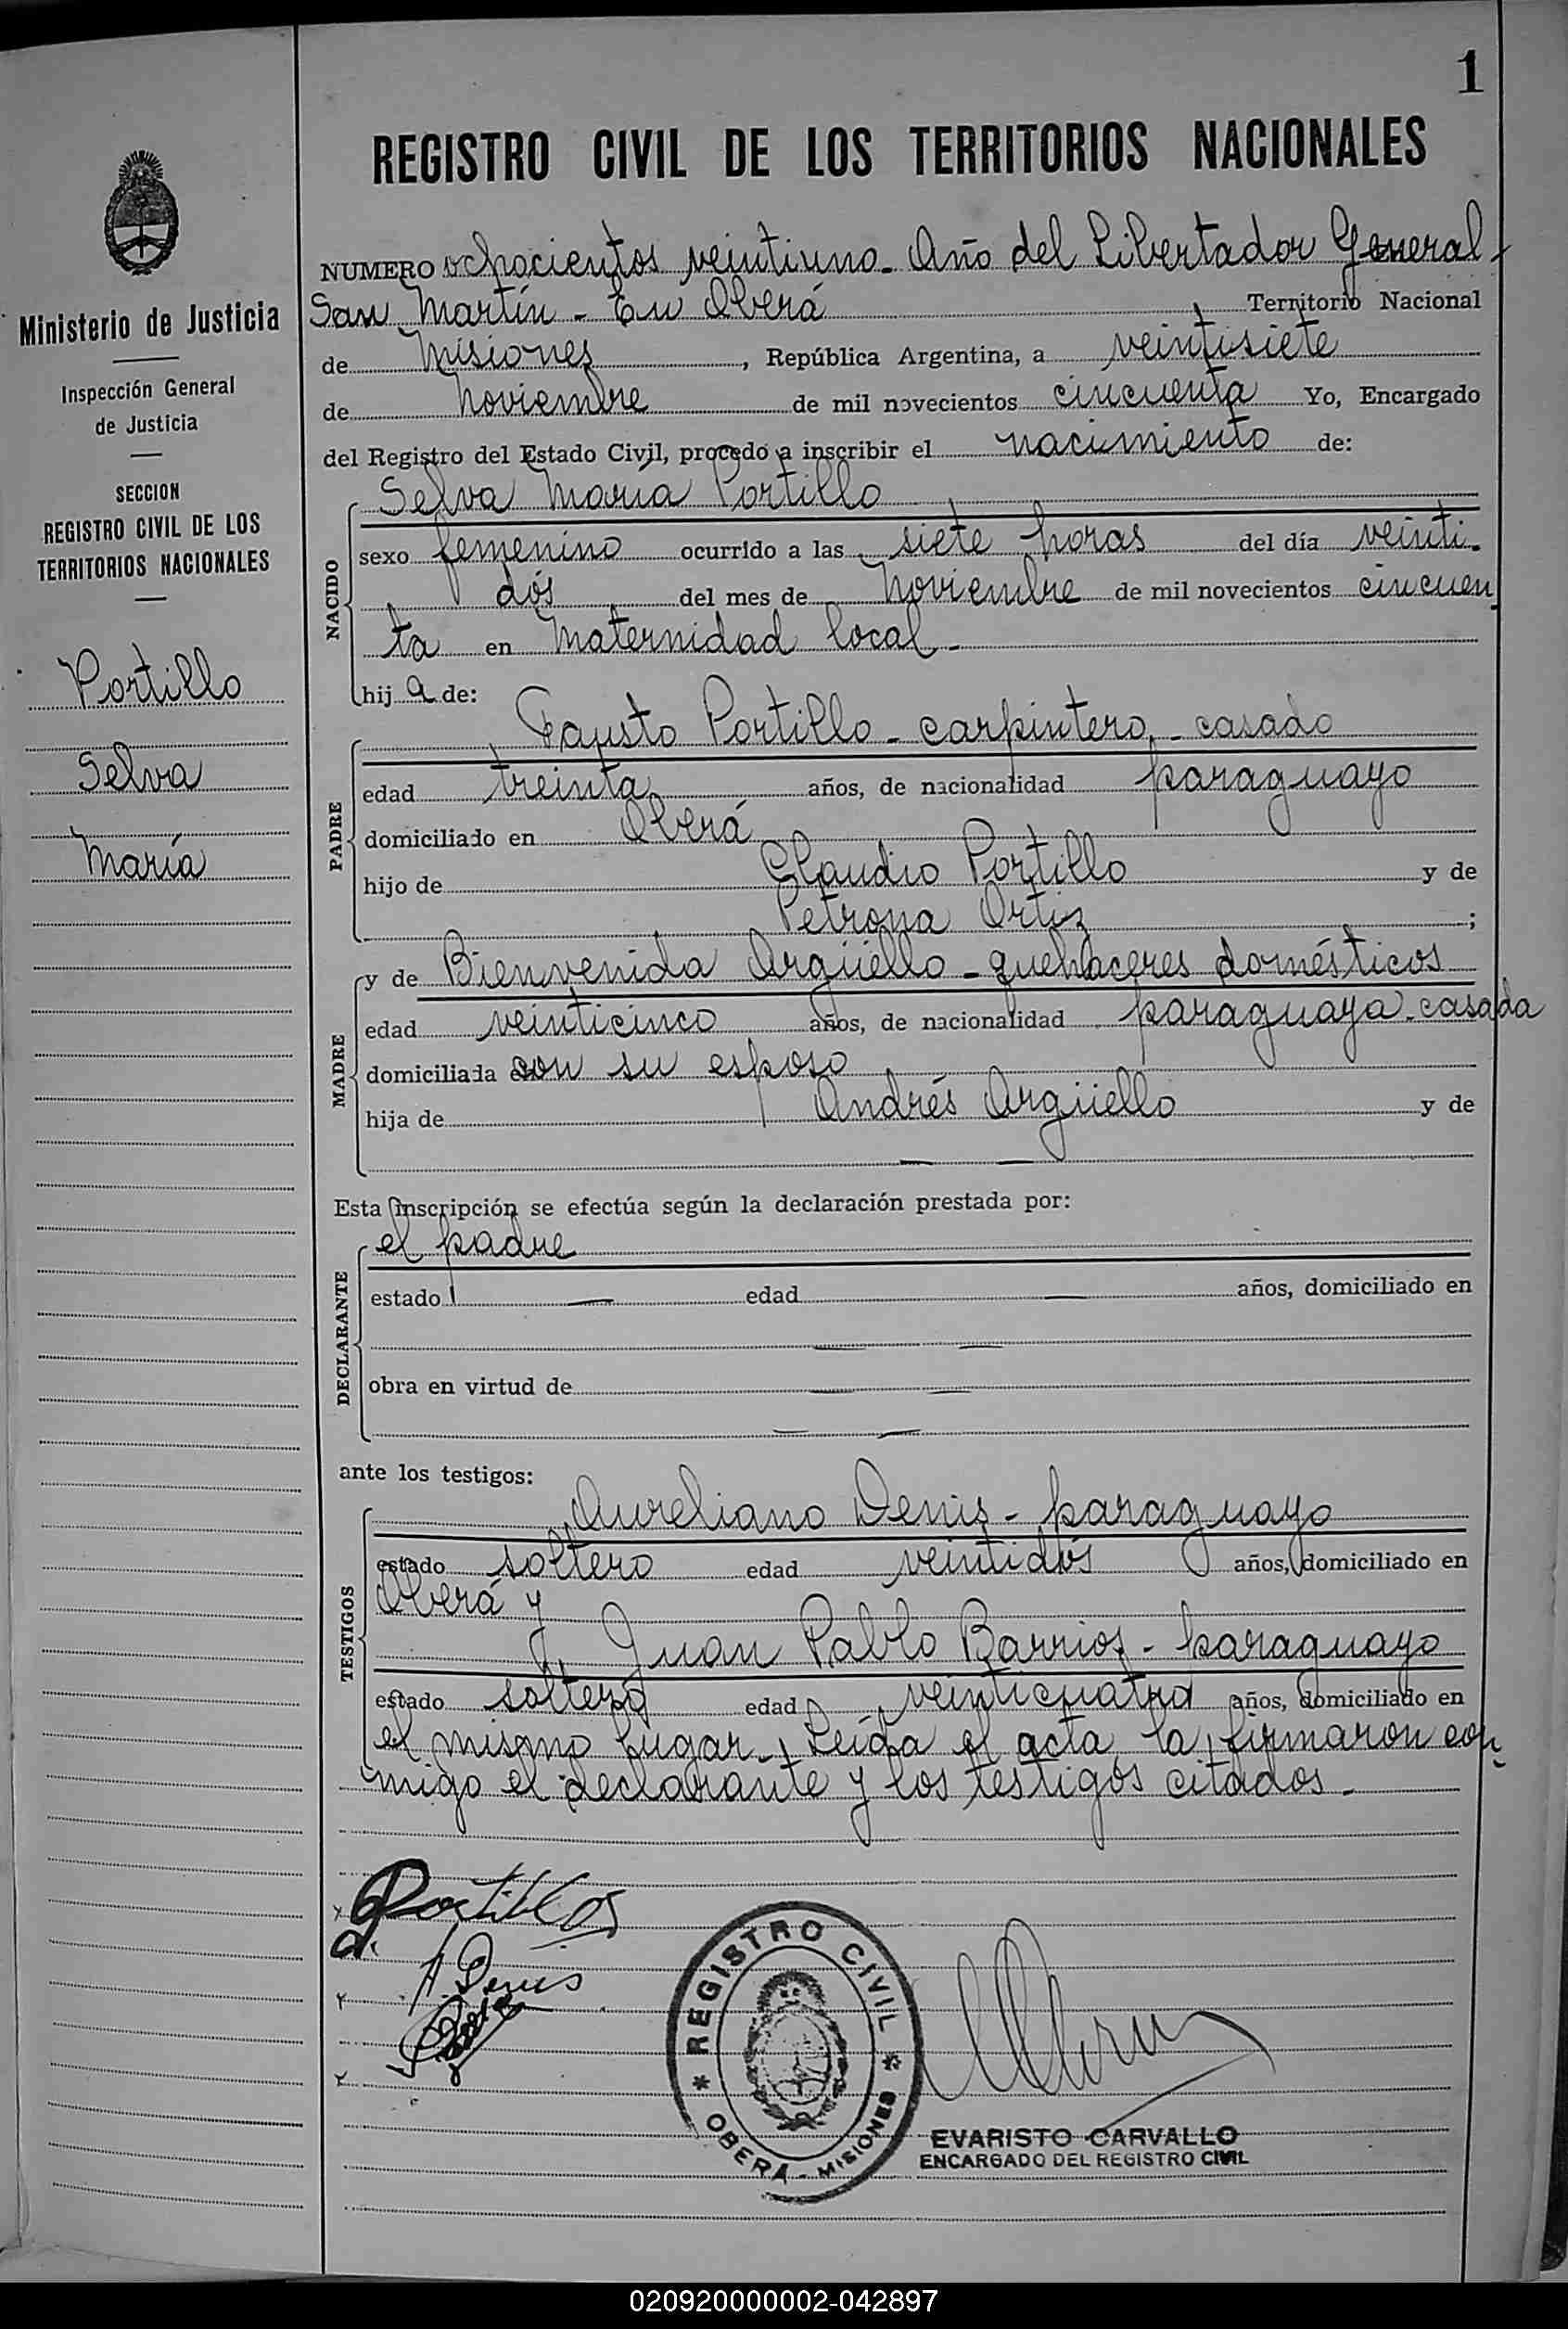 1
REGISTRO CIVIL DE LOS TERRITORIOS NACIONALES
Ministerio de Justicia
Inspección General
de Justicia
SECCION
REGISTRO CIVIL DE LOS
TERRITORIOS NACIONALES
Portillo
Selva
María
NUMERO ochocientos veintiuno - Año del Libertador General
San Martín - En Oberá Territorio Nacional
de Misiones, República Argentina, a veintisiete
de Noviembre de mil novecientos cincuenta Yo, Encargado
del Registro del Estado Civil, procedo a inscribir el nacimiento de:
NACIDO
Selva María Portillo
sexo femenino ocurrido a las siete horas del día veinti-
dós del mes de Noviembre de mil novecientos cincuen
ta en Maternidad local -
hija de:
PADRE
Fausto Portillo - carpintero, - casado
edad treinta años, de nacionalidad paraguayo
domiciliado en Oberá
hijo de Claudio Portillo y de
Petrona Ortiz ;
MADRE
y de Bienvenida Argüello - quehaceres domésticos
edad veinticinco años, de nacionalidad paraguaya - casada
domiciliada con su esposo
hija de Andrés Argüello y de
— —
Esta inscripción se efectúa según la declaración prestada por:
DECLARANTE
el padre
estado — edad — años, domiciliado en
— —
obra en virtud de — —
— —
ante los testigos:
TESTIGOS
Aureliano Denis - paraguayo
estado soltero edad veintidós años, domiciliado en
Oberá y
Juan Pablo Barrios - paraguayo
estado soltero edad veinticuatro años, domiciliado en
el mismo lugar - Leída el acta, la firmaron con
migo el declarante y los testigos citados -
Portillo
A. Denis
REGISTRO CIVIL
* OBERA - MISIONES *
EVARISTO CARVALLO
ENCARGADO DEL REGISTRO CIVIL
020920000002-042897